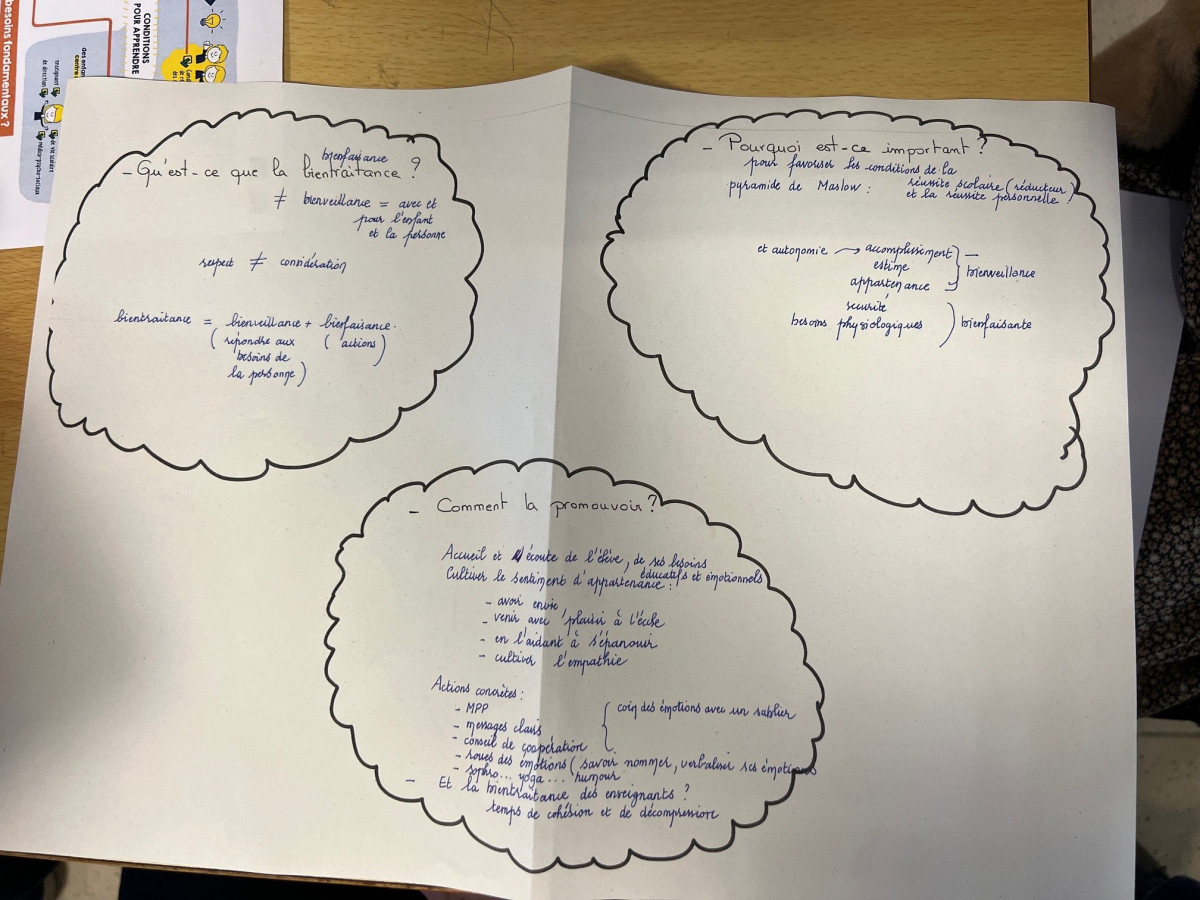 besoins fondamentaux ?
CONDITIONS
POUR APPRENDRE
- Qu'est-ce que la bientraitance ?
bienfaisance
≠ bienveillance = avec et
pour l'enfant
et la personne
respect ≠ considération
bientraitance = bienveillance + bienfaisance.
( répondre aux ( actions )
besoins de
la personne )
- Pourquoi est-ce important ?
pour favoriser les conditions de la
pyramide de Maslow : réussite scolaire (réducteur)
et la réussite personnelle
et autonomie → accomplissement
estime
appartenance
} bienveillance
sécurité
besoins physiologiques ) bienfaisante
- Comment la promouvoir ?
Accueil et écoute de l'élève, de ses besoins
éducatifs et émotionnels
Cultiver le sentiment d'appartenance :
- avoir envie,
- venir avec plaisir à l'école
- en l'aidant à s'épanouir
- cultiver l'empathie
Actions concrètes :
- MPP { coin des émotions avec un sablier
- messages clairs
- conseil de coopération
- roues des émotions ( savoir nommer, verbaliser ses émotions
- sophro... yoga... humour
- Et la bientraitance des enseignants ?
temps de cohésion et de décompression